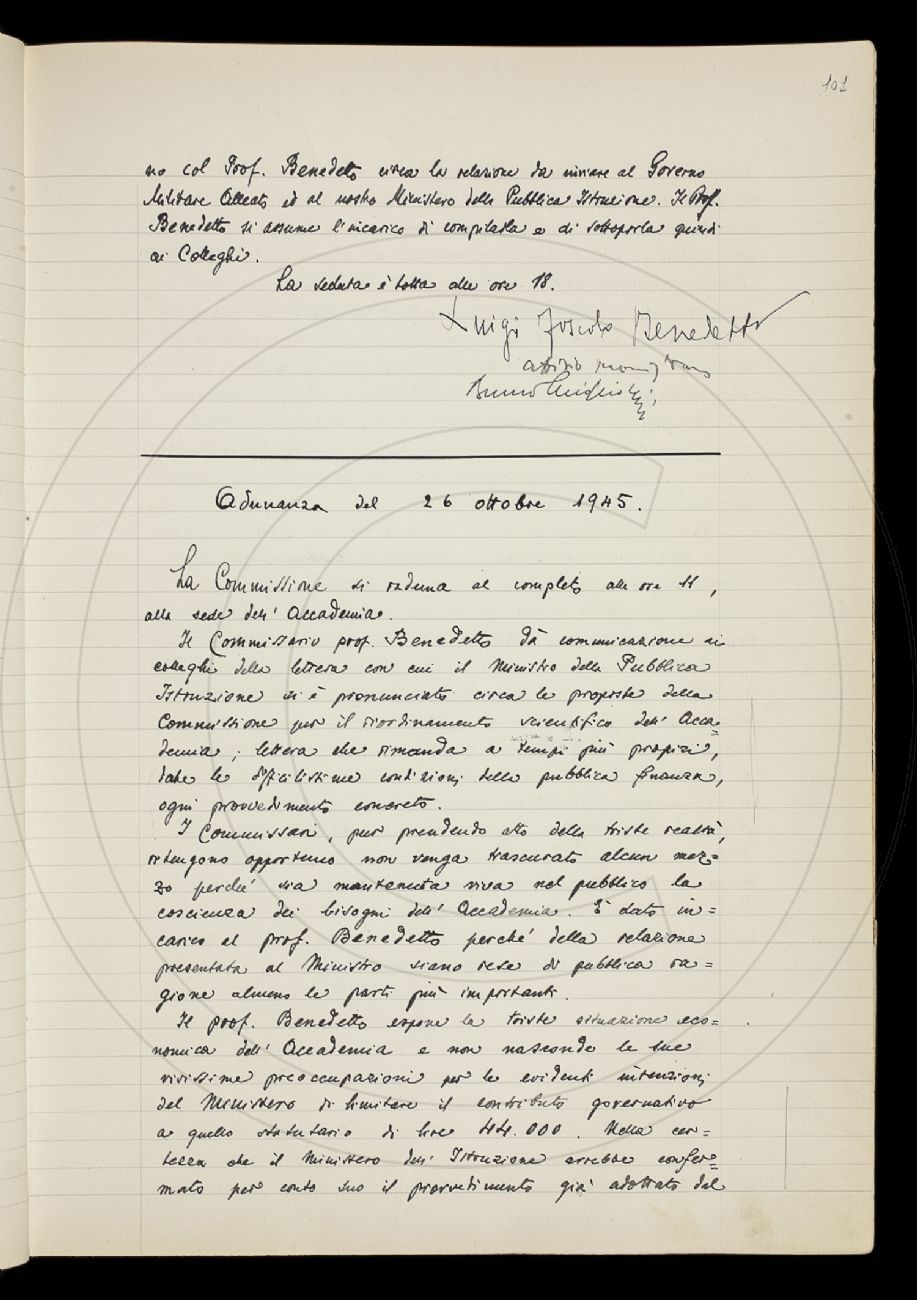 101
no col Prof. Benedetto circa la relazione da inviare al Governo
Militare Alleato ed al nostro Ministero della Pubblica Istruzione. Il Prof.
Benedetto si assume l'incarico di compilarla e di sottoporla quindi
ai Colleghi.
La seduta è tolta alle ore 18.
Luigi Foscolo Benedetto
Attilio Momigliano
Bruno Migliorini
Adunanza del 26 ottobre 1945.
La Commissione si raduna al completo alle ore 11,
alla sede dell' Accademia.
Il Commissario prof. Benedetto dà comunicazione ai
colleghi della lettera con cui il Ministro della Pubblica
Istruzione si è pronunciato circa le proposte della
Commissione per il riordinamento scientifico dell' Acca=
demia; lettera che rimanda a tempi più propizi,
date le difficilissime condizioni della pubblica finanza,
ogni provvedimento concreto.
I Commissari, pur prendendo atto della triste realtà,
ritengono opportuno non venga trascurato alcun mez=
zo perché sia mantenuta viva nel pubblico la
coscienza dei bisogni dell' Accademia. È dato in=
carico al prof. Benedetto perché della relazione
presentata al Ministro siano rese di pubblica ra=
gione almeno le parti più importanti.
Il prof. Benedetto espone la triste situazione eco=
nomica dell' Accademia e non nasconde le sue
vivissime preoccupazioni per le evidenti intenzioni
del Ministero di limitare il contributo governativo
a quello statutario di lire 44.000. Nella cer=
tezza che il Ministero dell' Istruzione avrebbe confer=
mato per conto suo il provvedimento già adottato dal